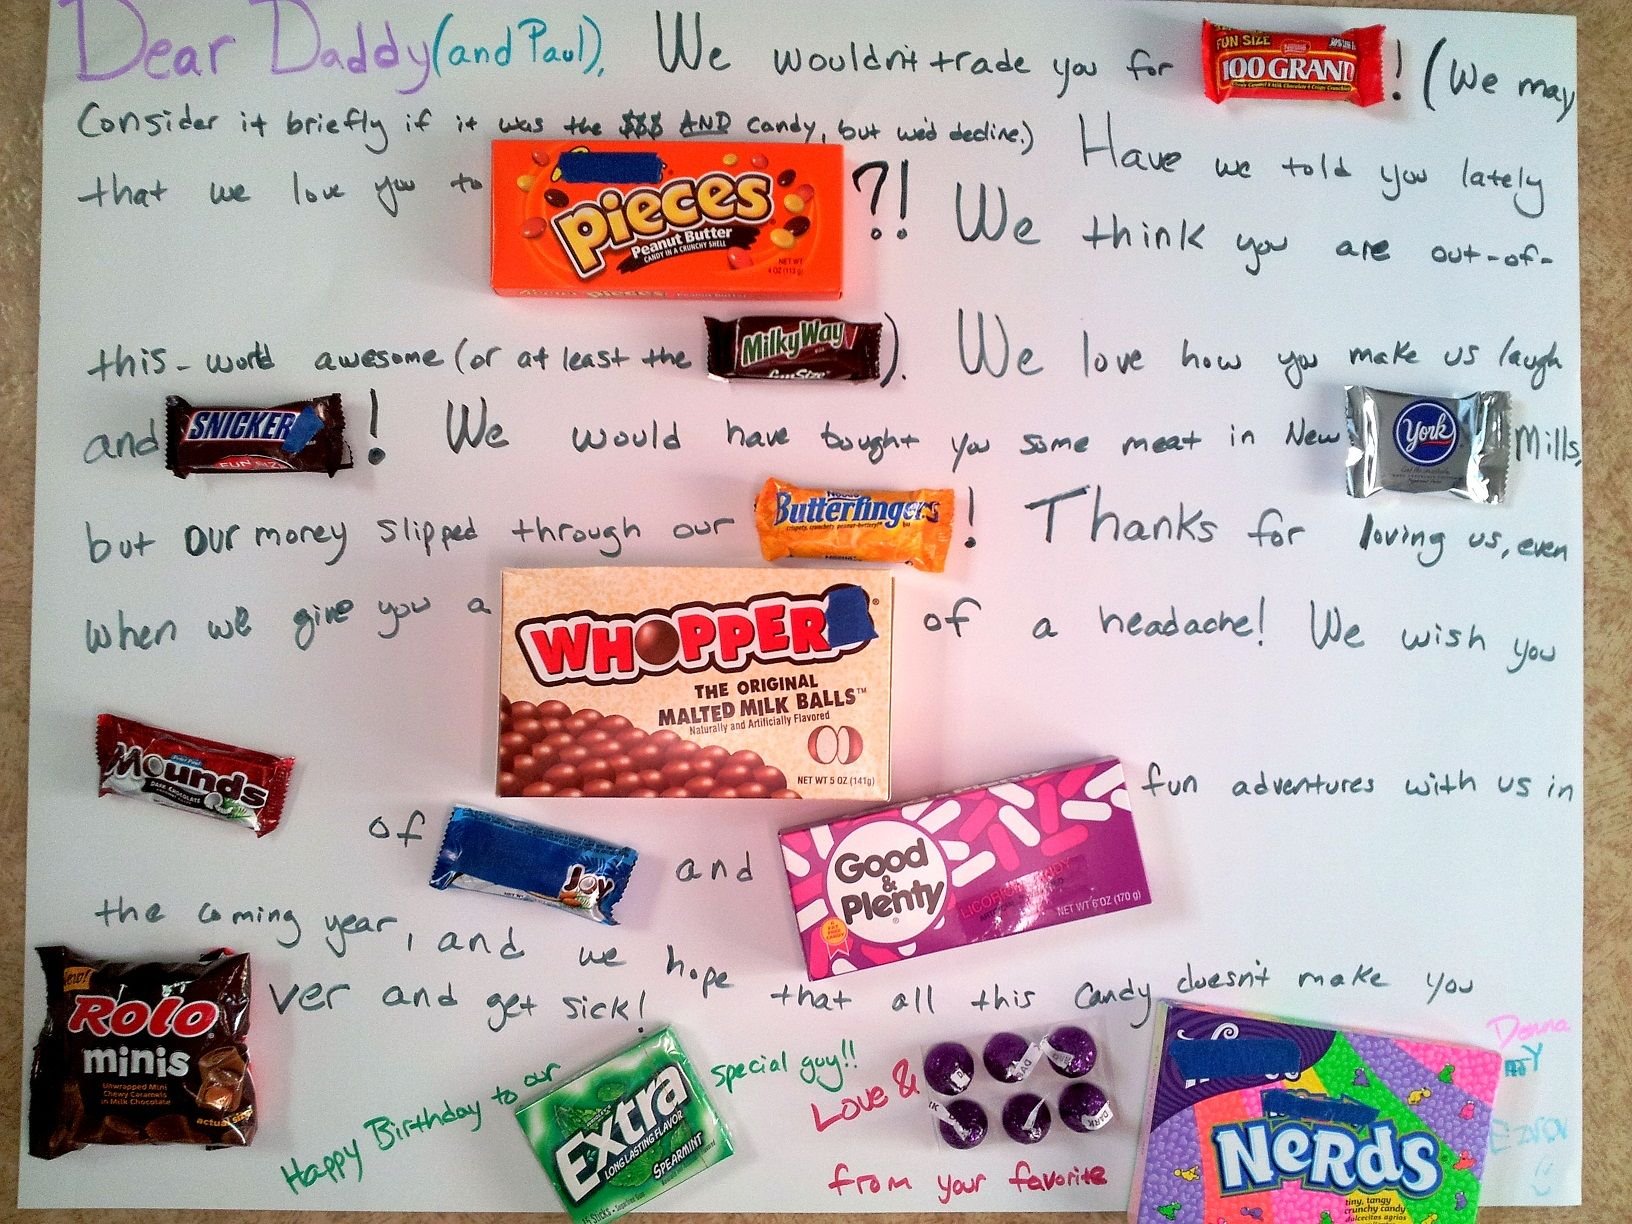 Dear Daddy (and Paul), We wouldn't trade you for FUN SIZE Nestle 100 GRAND ! (We may
Consider it briefly if it was the $$$ AND candy, but we'd decline.) Have we told you lately
that we love you to pieces Peanut Butter CANDY IN A CRUNCHY SHELL NET WT 4 OZ (113 g) ?! We think you are out-of-
this-world awesome (or at least the MilkyWay Fun Size ). We love how you make us laugh
and SNICKER FUN SIZE ! We would have bought you some meat in New York Mills,
but our money slipped through our Butterfingers crispety, crunchety, peanut-buttery! ! Thanks for loving us, even
when we give you a WHOPPER of a headache! We wish you
THE ORIGINAL
MALTED MILK BALLS™
Naturally and Artificially Flavored
NET WT 5 OZ (141g)
Mounds DARK CHOCOLATE of Joy and Good & Plenty LICORICE CANDY NET WT 6 OZ (170 g) fun adventures with us in
the coming year, and we hope that all this candy doesn't make you
Rolo minis ver and get sick!
Unwrapped Mini
Chewy Caramels
in Milk Chocolate
actual size
Happy Birthday to our Extra LONG LASTING FLAVOR SPEARMINT special guy!!
Love & DARK
from your favorite NeRds
tiny, tangy
crunchy candy
dulcecitos agrios
Donna